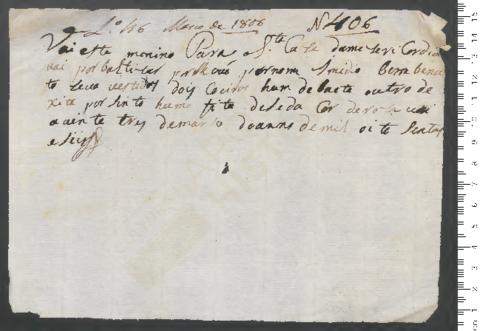 Lº 46 Março de 1806 N 406
Vai este menino Para a Sta Caza da me zeri Cordia
vai por bautizar por nome Emidio
to Leva vestido dois Coeiros hum de baeta outro de
xita por sinto huma fita de seda Cor de roza vai
a vinte tres de março do anno de mil oito Sentos
e Seis